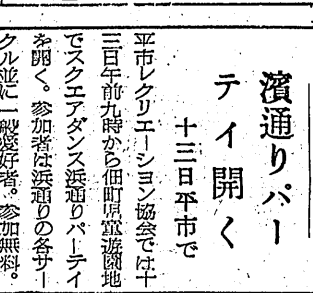 濱通りパー
テイ開く
十三日平市で
平市レクリエーション協会では十
三日午前九時から佃町児童遊園地
でスクエアダンス浜通りパーテイ
を開く。参加者は浜通りの各サー
クル並に一般愛好者。参加無料。